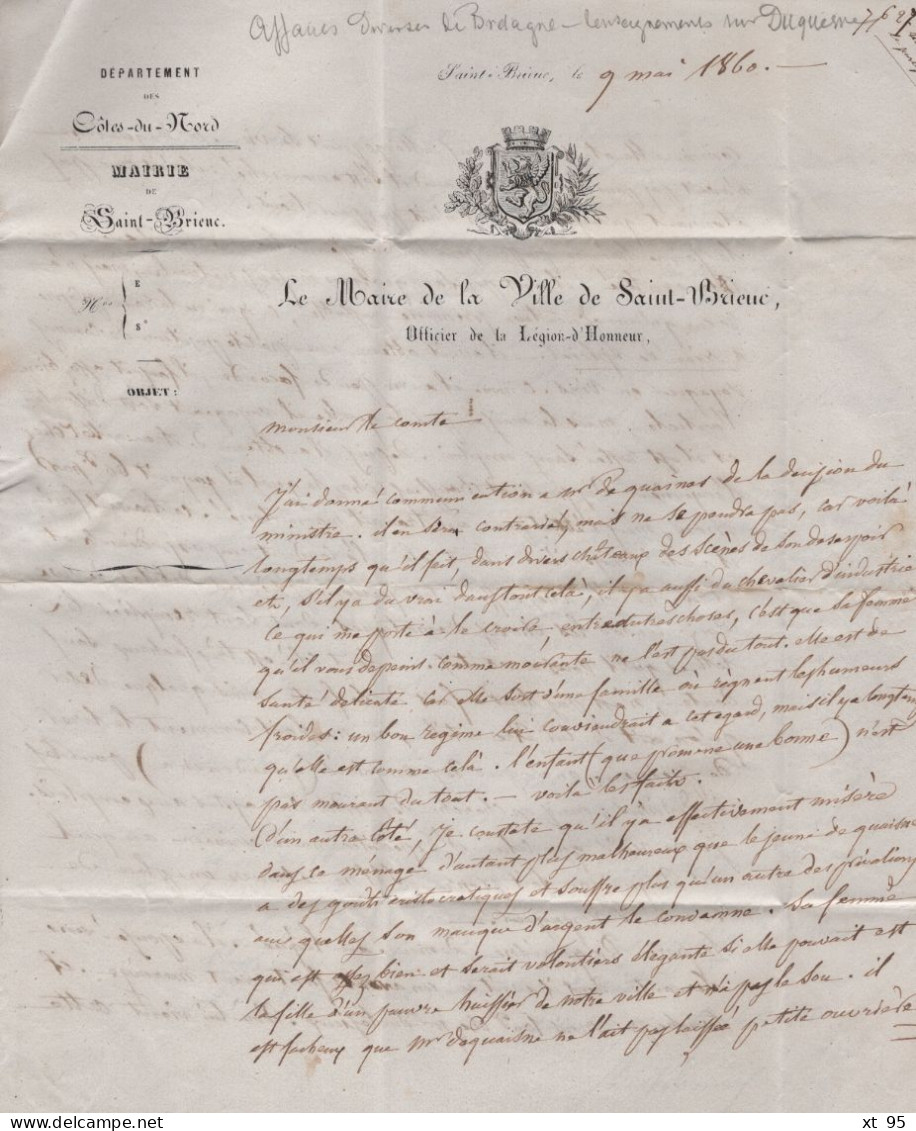 affaires diverses de Bretagne – renseignements sur Duquesne
7627
DÉPARTEMENT
DES
Côtes-du-Nord
MAIRIE
DE
Saint-Brieuc.
Saint-Brieuc, le 9 mai 1860. —
Nos
E
S
OBJET :
Le Maire de la Ville de Saint-Brieuc,
Officier de la Légion-d'Honneur,
Monsieur le comte
J'ai donné communication a mr de quaisnes de la decision du
ministre. il en sera contrarié, mais ne se pendra pas, car voilà
longtemps qu'il fait, dans divers châteaux des scènes de son desespoir
et, s'il y a du vrai dans tout celà, il y a aussi du chevalier d'industrie
Ce qui me porte à le croire, entre autres choses, c'est que sa femme
qu'il vous depeins comme mourante ne l'est pas du tout. elle est de
santé délicate car elle sort d'une famille où règnent les humeurs
froides : un bon regime lui conviendrait a cet egard, mais il y a longtemps
qu'elle est comme celà. l'enfant (que promene une bonne) n'est
pas mourant du tout. — voilà les faits.
D'un autre coté, je constate qu'il y a effectivement misère
dans ce ménage d'autant plus malheureux que le jeune de quaisne
a des goûts aristocratiques et souffre plus qu'un autre des privations
aux quelles son manque d'argent le condamne. sa femme
qui est assez bien et serait volontiers élégante si elle pouvait est
la fille d'un pauvre huissier de notre ville et n'a pas le sou. il
est facheux que mr dequaisne ne l'ait pas laissée petite ouvrière
xt 95